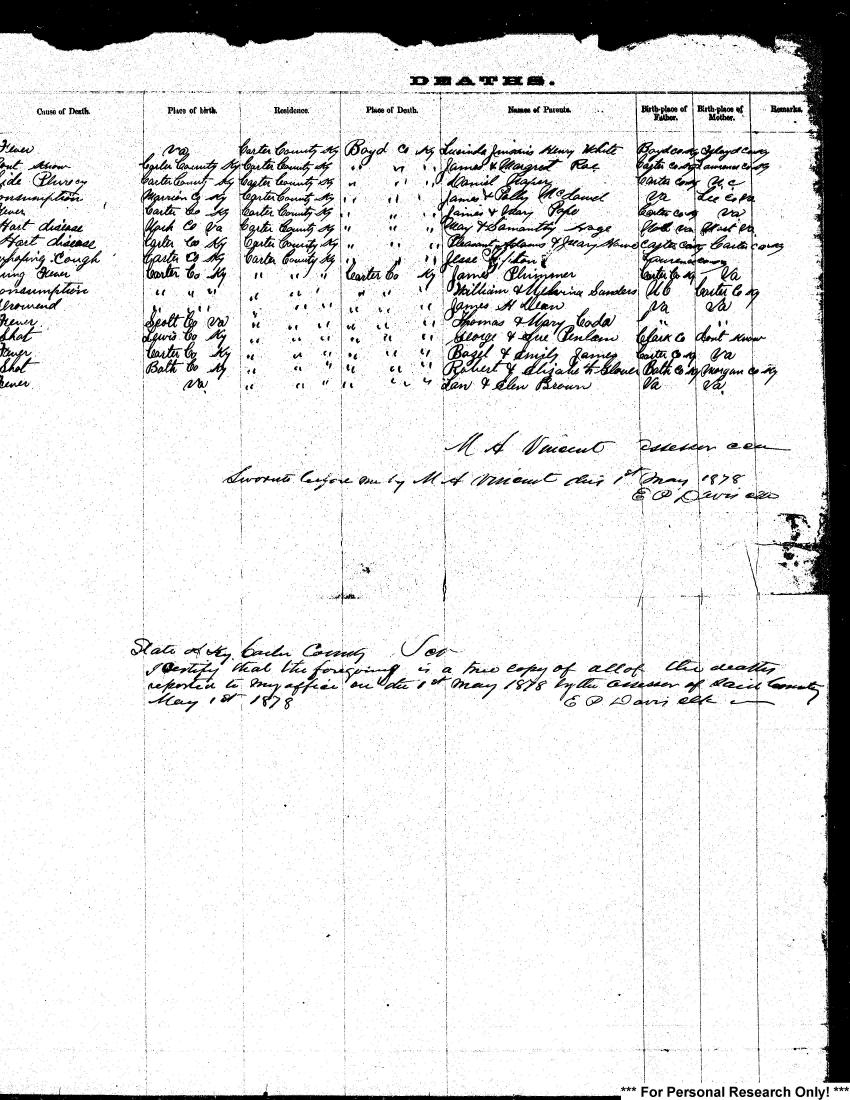 DEATHS.
Cause of Death. Place of birth. Residence. Place of Death. Names of Parents. Birth-place of Father. Birth-place of Mother. Remarks.
Fever Va Carter County Ky Boyd Co Ky Lucinda Henry White Boyd co Ky
ont Know Carter County Ky Carter County Ky " " " James & Margret Rae Carter Co Ky Lawrence co Ky
ide Plurcy Carter County Ky Carter County Ky " " " Daniel Carter Co Ky N.C
onsumption Marrion Co Ky Carter County Ky " " " James & Polly McDanel Va Lee Co Va
ever Carter Co Ky Carter County Ky " " " James & Mary Pope Carter Co Ky Va
Hart disease Co Va Carter County Ky " " " & Samantha Va Va
Hart disease Carter Co Ky Carter County Ky " " " Pleasant Adams & Mary Carter Co Ky Carter Co Ky
hoping Cough Carter Co Ky Carter County Ky " " " Jesse Lawrence co Ky
ung Fever Carter Co Ky " " " Carter Co Ky James Plummer Carter Co Ky Va
onsumption " " " " " " " " " William & Sanders NC Carter Co Ky
rownd " " " " " " " " " James H Dean Va Va
Fever Scott Co Va " " " " " " Thomas & Mary Coda " "
Shot Lewis Co Ky " " " " " " George & Sue Penlam Clark Co Dont Know
Fever Carter Co Ky " " " " " " Bazel & Emily James Carter Co Ky Va
Shot Bath Co Ky " " " " " " Robert & Elizabeth Glover Bath Co Ky Morgan Co Ky
Fever Va " " " " " " & Elen Brown Va Va
M A Vincent assessor
Sworn to before me by M A Vincent this 1st May 1878
E P Davis clk
State of Ky Carter County Sct
I Certify that the foregoing is a true copy of all of the deaths
reported to my office on the 1st May 1878 by the assessor of Said County
May 1st 1878 E P Davis clk
*** For Personal Research Only! ***